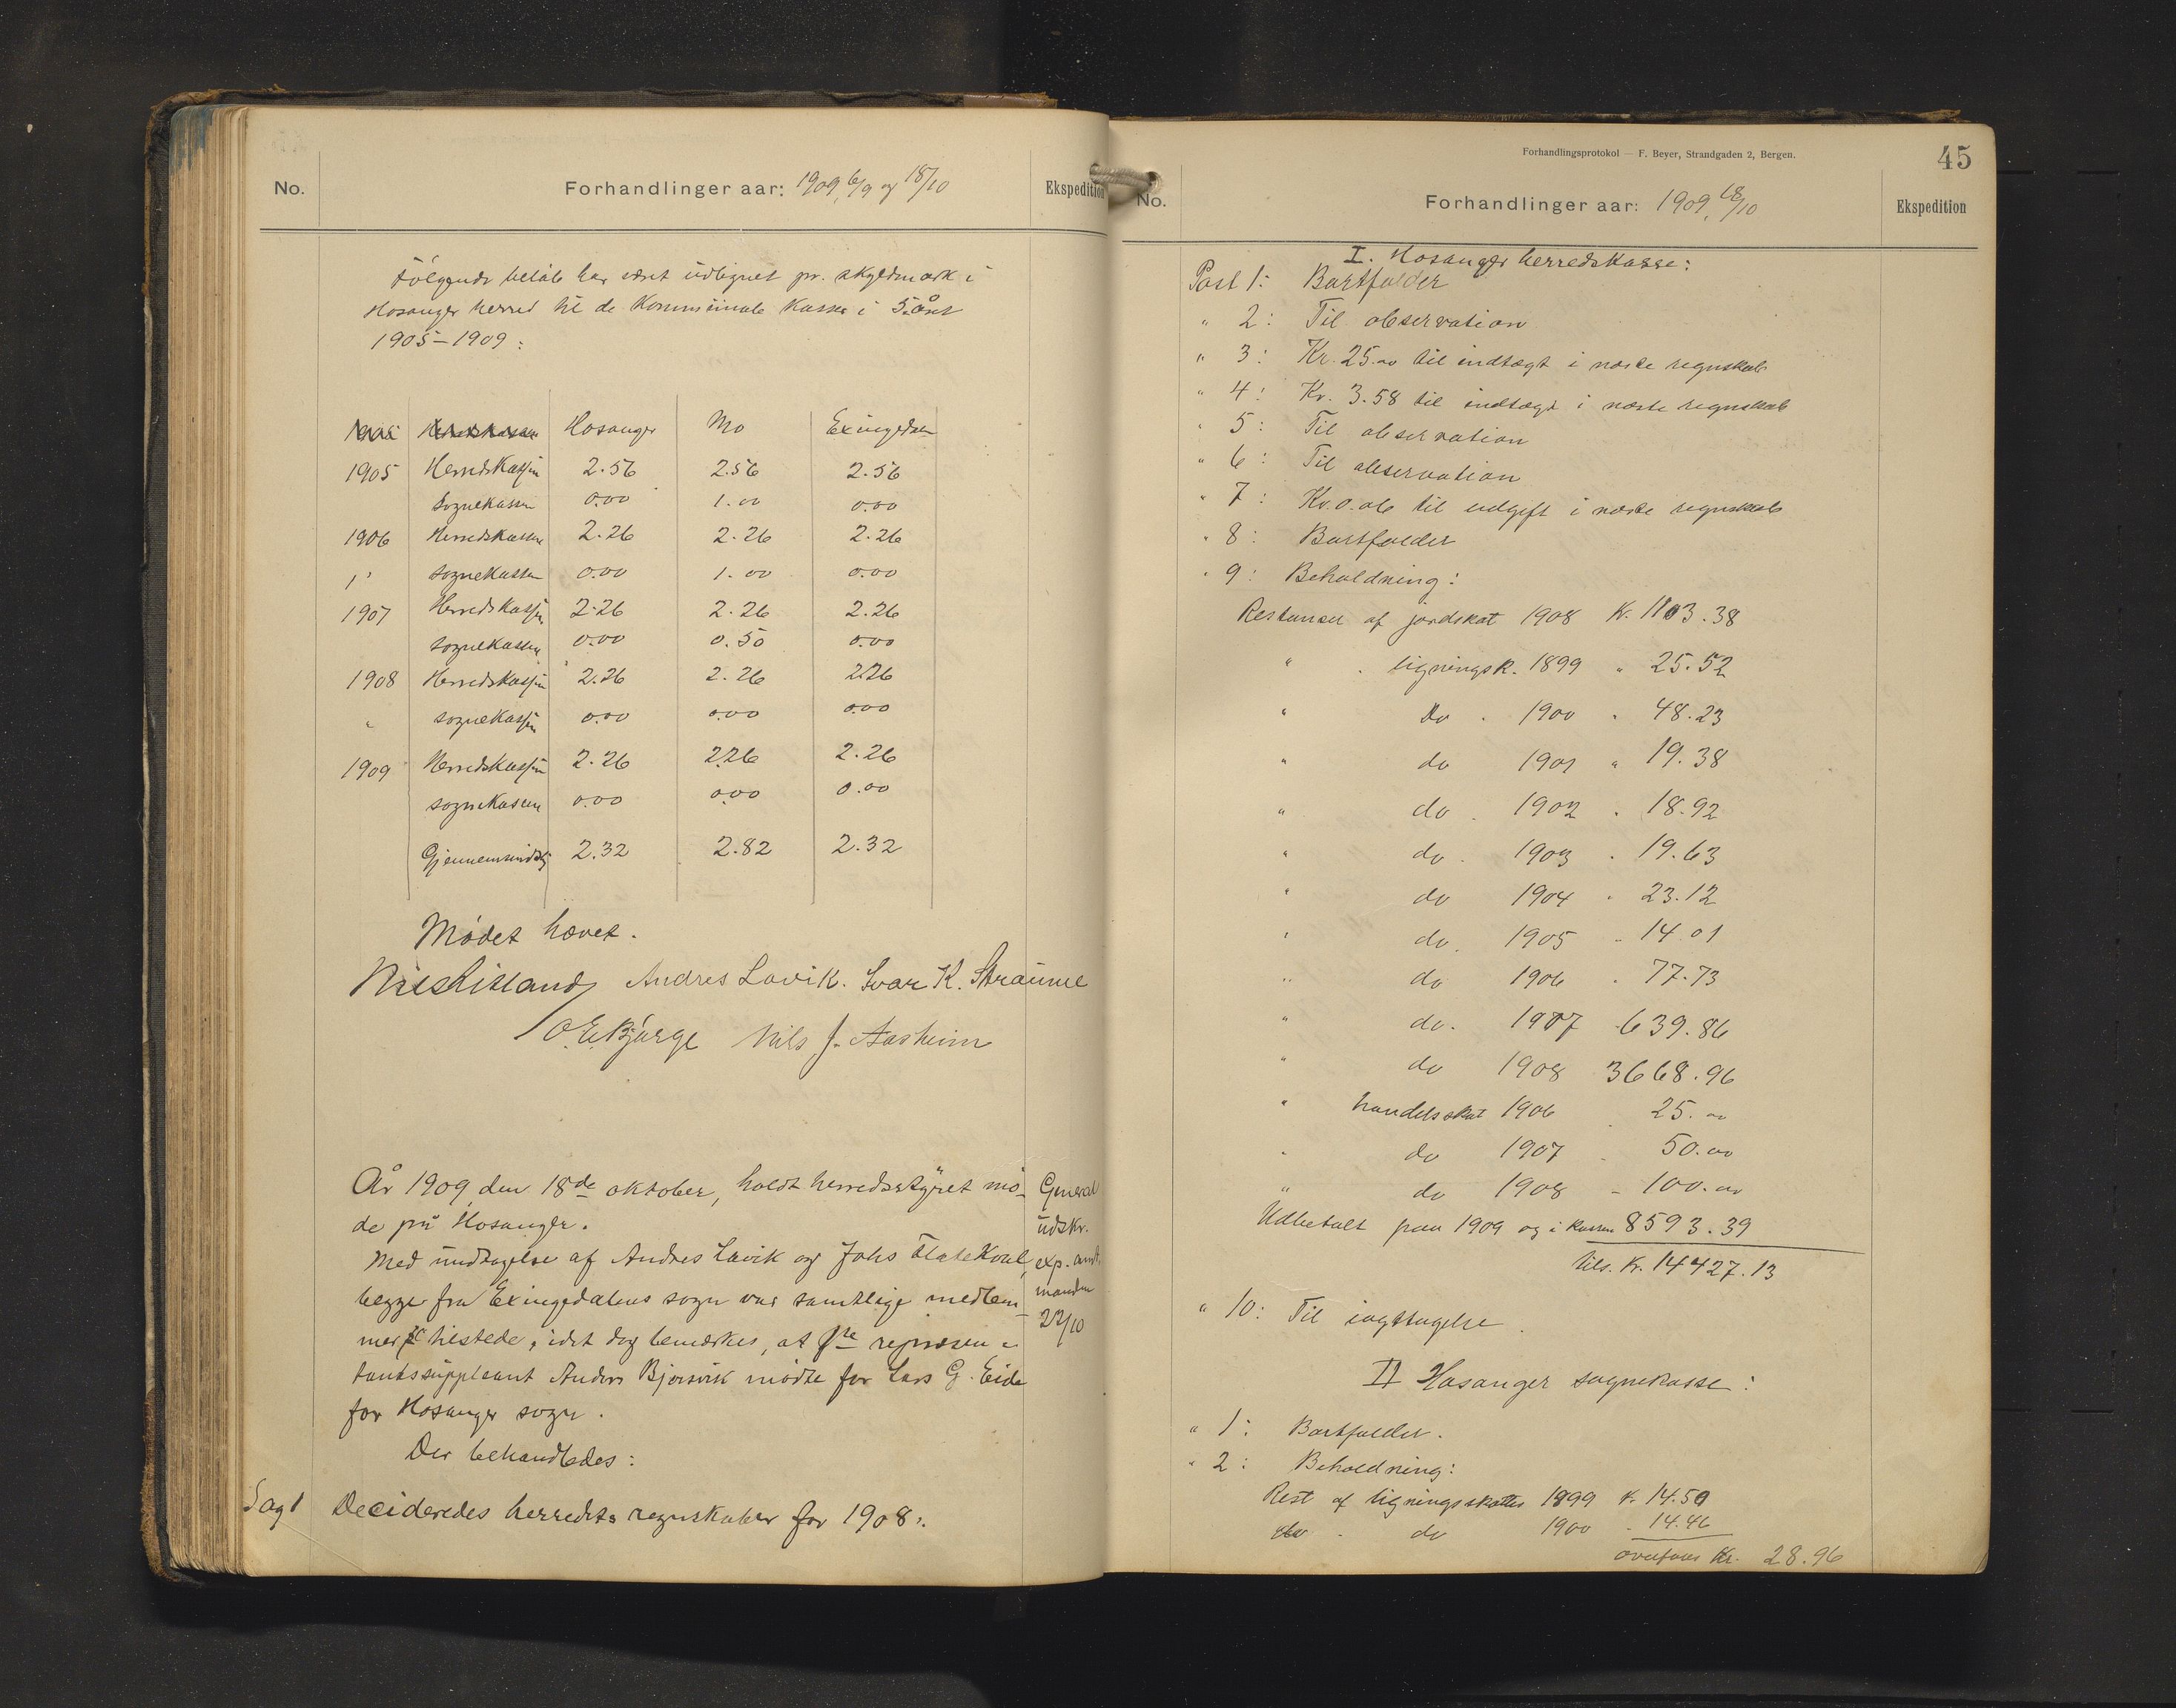 No.
Forhandlinger aar: 1909, 6/9 og 18/10
Ekspedition
Følgende beløb har været udlignet pr. skyldmark i
Hosanger herred til de kommunale kasser i 5.året
1905-1909:
Hosanger Mo Exingedalen
1905 Herredskassen 2.56 2.56 2.56
Sognekassen 0.00 1.00 0.00
1906 Herredskassen 2.26 2.26 2.26
" sognekassen 0.00 1.00 0.00
1907 Herredskassen 2.26 2.26 2.26
sognekassen 0.00 0.50 0.00
1908 Herredskassen 2.26 2.26 2.26
" sognekassen 0.00 0.00 0.00
1909 Herredskassen 2.26 2.26 2.26
sognekassen 0.00 0.00 0.00
Gjennemsnitlig 2.32 2.82 2.32
Mødet hævet.
Andres Lavik. Ivar K. Straume
O. E. Bjørge Nils J. Aasheim
År 1909 den 18de oktober, holdt herredsstyret mø-
de på Hosanger.
Med undtagelse af Andres Lavik og Johs Flatekval,
begge fra Exingedalens sogn var samtlige medlem-
mer tilstede, idet dog bemærkes, at 1ste repræsen-
tantssuppleant Anders Bjørsvik mødte for Lars G. Eide
for Hosanger sogn.
Der behandledes:
General
udskr.
exp. amt-
manden
22/10
Sag 1 Decideredes herredets regnskaber for 1908:
Forhandlingsprotokol — F. Beyer, Strandgaden 2, Bergen.
45
No.
Forhandlinger aar: 1909, 18/10
Ekspedition
I. Hosanger herredskasse:
Post 1: Bortfalder
" 2: Til observation
" 3: Kr. 25.00 til indtægt i næste regnskab
" 4: Kr. 3.58 til indtægt i næste regnskab
" 5: Til observation
" 6: Til observation
" 7: Kr. 0.06 til udgift i næste regnskab
" 8: Bortfalder
" 9: Beholdning:
Restanser af jordskat 1908 Kr. 1103.38
" " ligningsk. 1899 " 25.52
" do " 1900 " 48.23
" do 1901 " 19.38
" do " 1902 " 18.92
" do " 1903 " 19.63
" do 1904 " 23.12
" do " 1905 " 14.01
" do 1906 " 77.73
" do. 1907 639.86
" do 1908 3668.96
" handelsskat 1906 25.00
" do 1907 50.00
" do 1908 - 100.00
Udbetalt paa 1909 og i kassen 8593.39
tils. Kr. 14427.13
" 10: Til iagttagelse.
II Hosanger sognekasse:
" 1: Bortfalder.
" 2: Beholdning:
Rest af ligningsskatter 1899 Kr. 14.50
do " do 1900 " 14.46
overføres Kr. 28.96